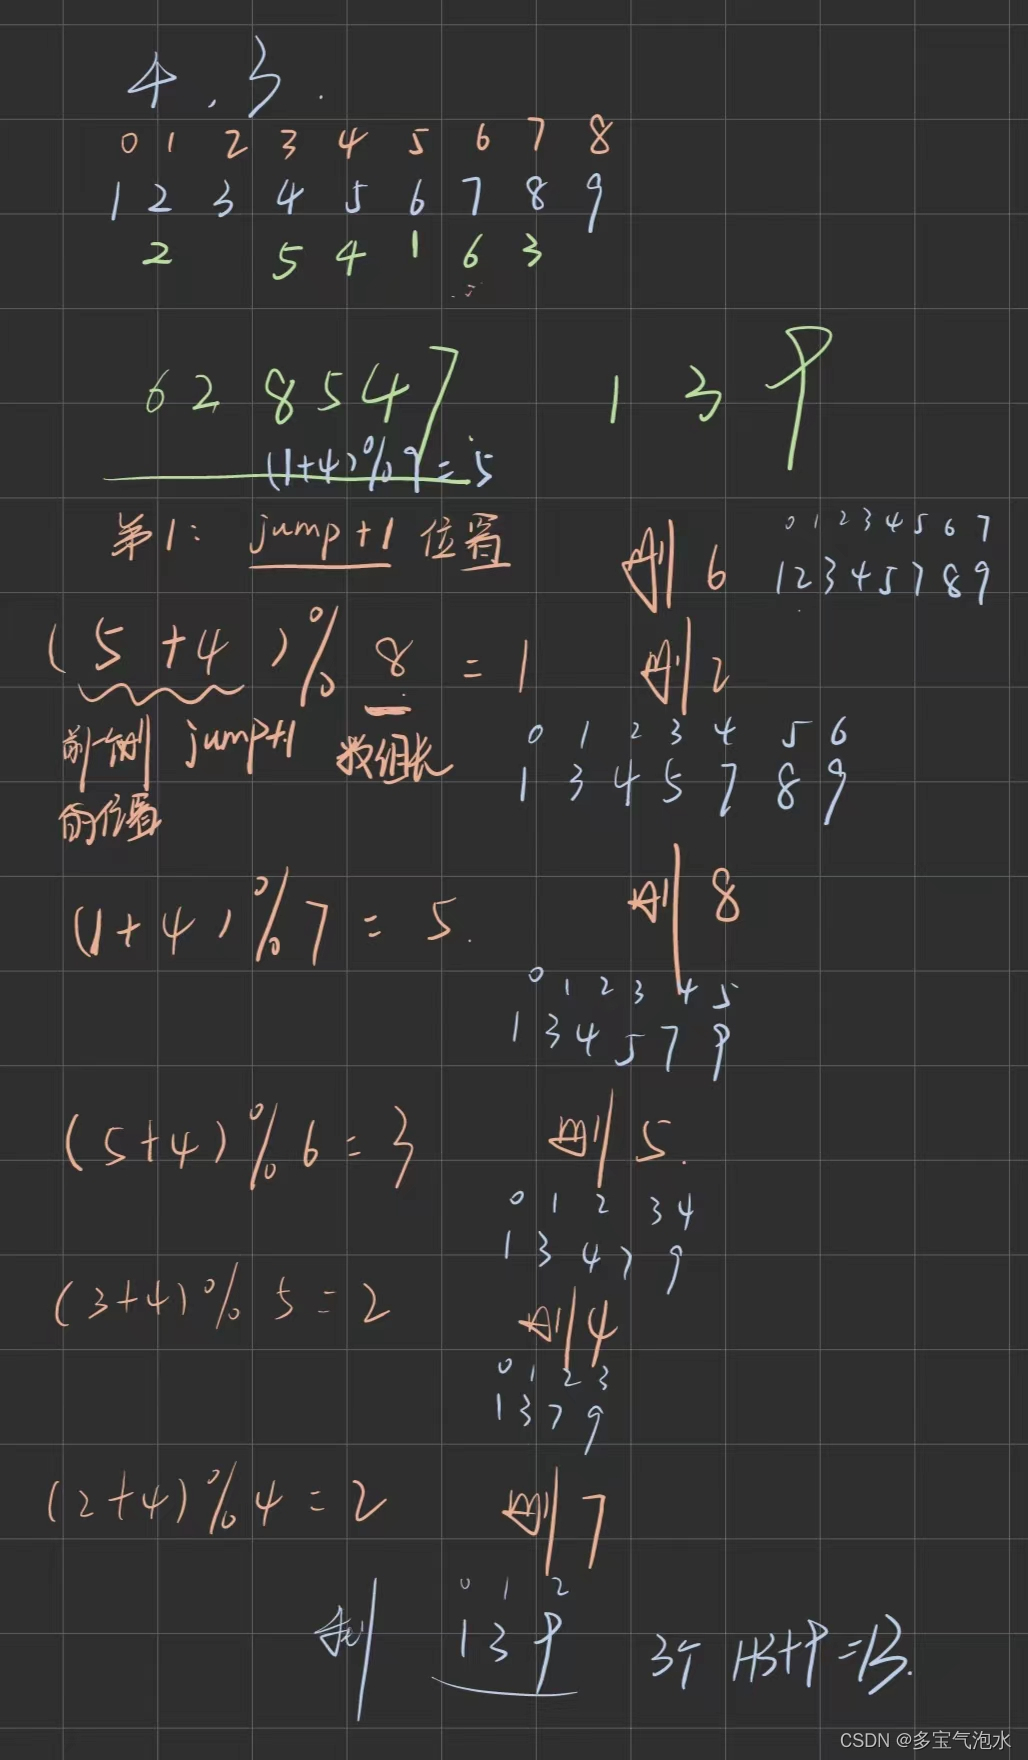 4 , 3 .
0 1 2 3 4 5 6 7 8
1 2 3 4 5 6 7 8 9
2 5 4 1 6 3
6 2 8 5 4 7 1 3 9
(1+4)%9=5
第1: jump+1 位置
删 6
0 1 2 3 4 5 6 7
1 2 3 4 5 7 8 9
(5+4)%8=1 删 2
前一个删的位置 jump+1 数组长
0 1 2 3 4 5 6
1 3 4 5 7 8 9
(1+4)%7=5. 删 8
0 1 2 3 4 5
1 3 4 5 7 9
(5+4)%6=3 删 5.
0 1 2 3 4
1 3 4 7 9
(3+4)%5=2 删 4
0 1 2 3
1 3 7 9
(2+4)%4=2 删 7
0 1 2
剩 1 3 9 3个 1+3+9=13.
CSDN @多宝气泡水